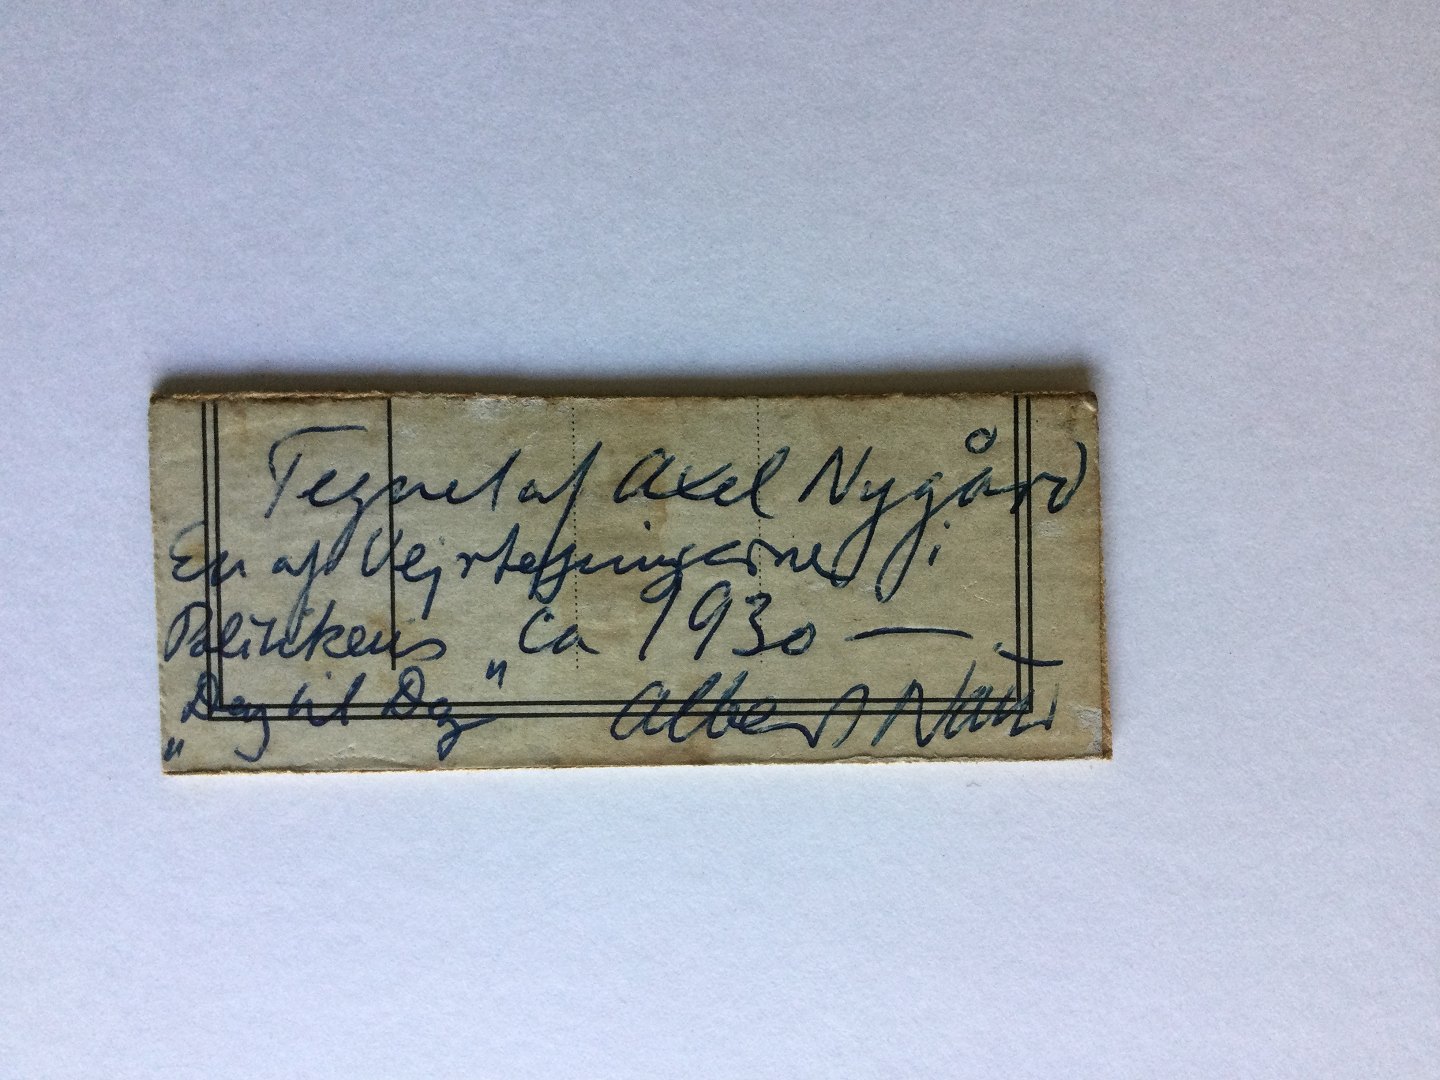 Tegnet af Axel Nygård
En af Vejrtegningerne i
Politikens ca 1930 —
„Dag til Dag" Albert